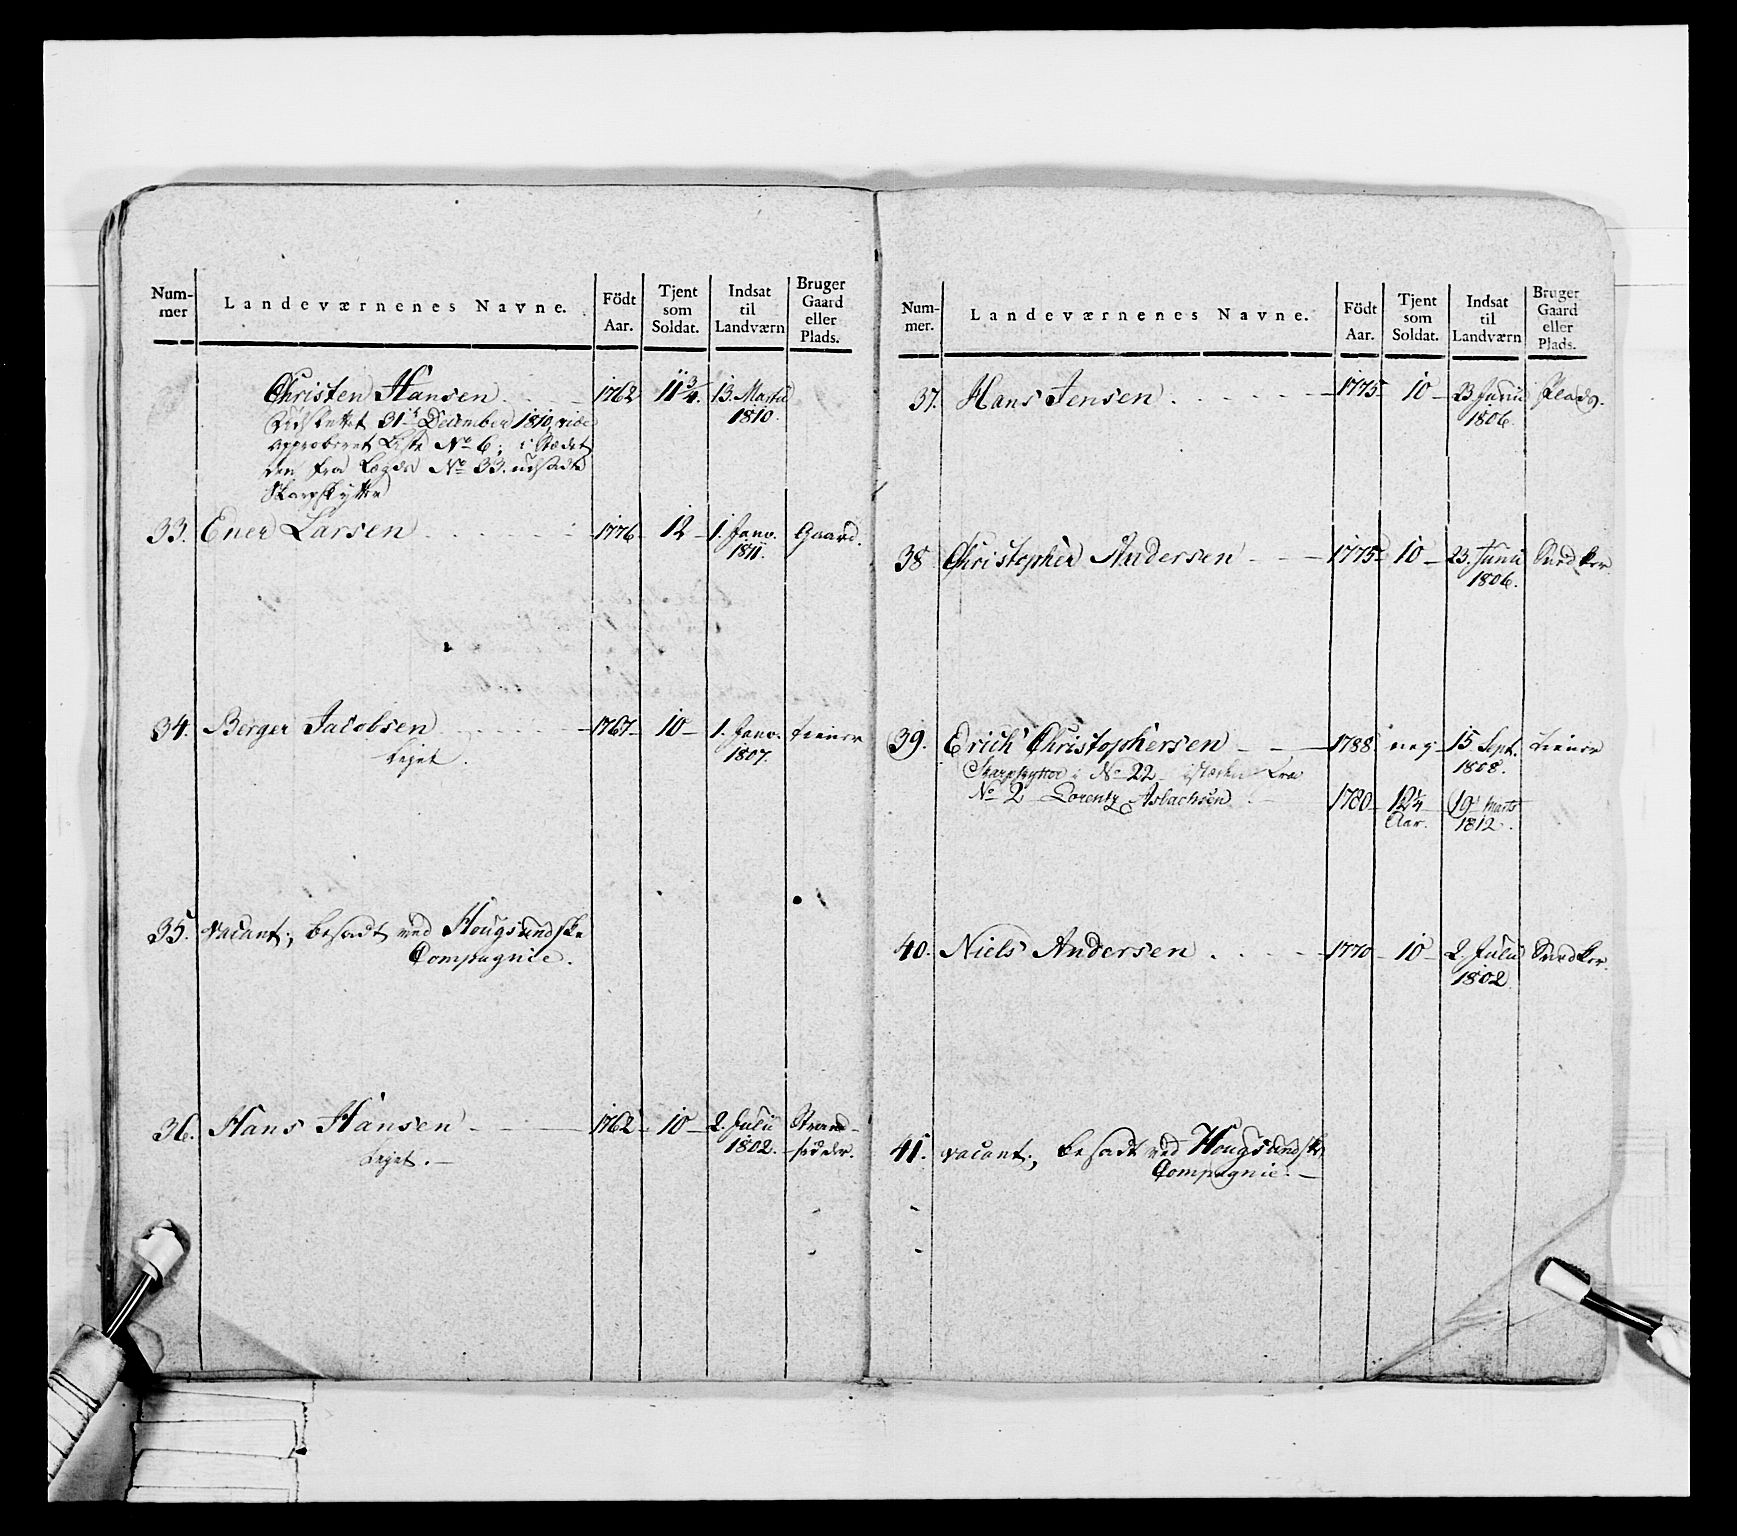 Num-
mer
Landeværnenes Navne.
Födt
Aar.
Tjent
som
Soldat.
Indsat
til
Landværn
Bruger
Gaard
eller
Plads.
Christen Hansen 1762 11 3/4. 13. Martii
1810.
Udslettet 31te December 1810, vide
approberet Liste No 6; i Stædet
den fra Lægde No 33. udsadte
Skarpskytter
33. Ener Larsen 1776 12 1. Janv. Gaard.
1811.
34. Berger Jacobsen 1767 10 1. Janv. tiener
1807.
Lejet.
35. vacant; besadt ved Hougsundske
Compagnie.
36. Hans Hansen 1762 10 2. Julii Strand-
1802. sidder.
Lejet.
Num-
mer.
Landeværnenes Navne.
Födt
Aar.
Tjent
som
Soldat.
Indsat
til
Landværn
Bruger
Gaard
eller
Plads.
37. Hans Jensen 1775 10 23 Junii Plads.
1806.
38 Christopher Andersen 1775 10 23. Junii Snedker
1806.
39. Erich Christophersen 1788 neg 15 Sept. tiener
1808.
Skarpskytter i No 22 istæden fra
No 2 Lorentz Asbachsen 1780 12 1/4 19 Marts
Aar. 1812.
40. Niels Andersen 1770 10 2. Julii Snedker.
1802
41. vacant; besadt ved Hougsundske
Compagnie.